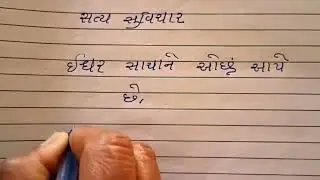 સત્ય સુવિચાર
ઈશ્વર સાચાને ઓછું આપે
છે.